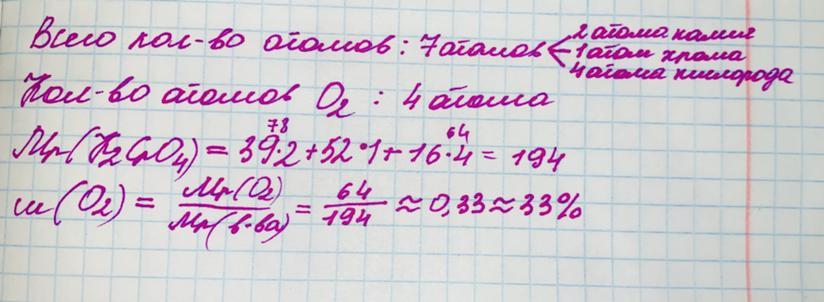 Всего кол-во атомов: 7 атомов
2 атома калия
1 атом хрома
4 атома кислорода
Кол-во атомов O₂ : 4 атома
78 64
Mr(K₂CrO₄) = 39·2+52·1+16·4 = 194
ω(O₂) = Mr(O₂) / Mr(в-ва) = 64 / 194 ≈ 0,33 ≈ 33%